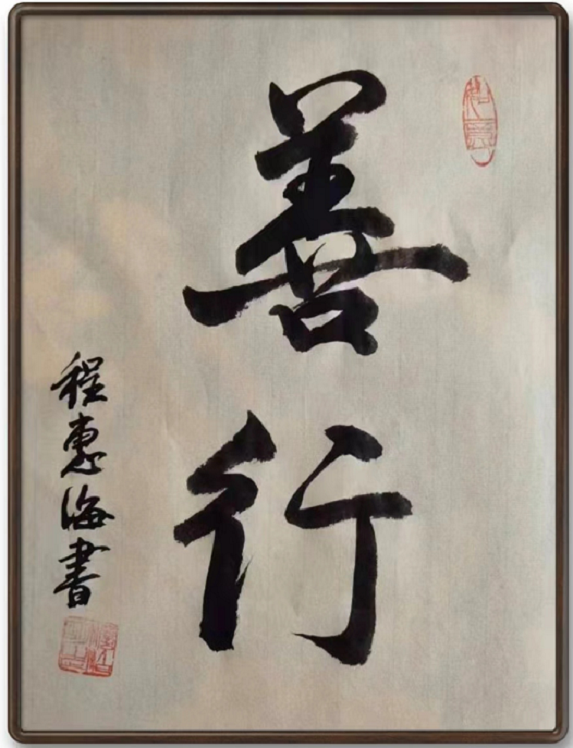 善行
程惠海書